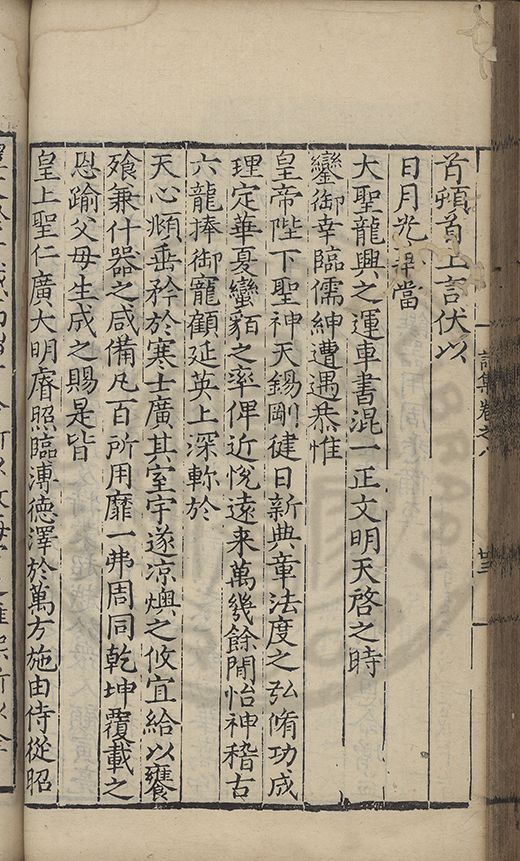 首頓首上言伏以
日月光華當
大聖龍興之運車書混一正文明天啓之時
鑾御幸臨儒紳遭遇恭惟
皇帝陛下聖神天錫剛徤日新典章法度之弘脩功成
理定華夏蠻貊之率俾近恱遠来萬幾餘閒怡神稽古
六龍捧御寵顧延英上深軫於
天心頻垂矜於寒士廣其室宇遂凉燠之攸宜給以饔
飱兼什器之咸備凡百所用靡一弗周同乾坤覆載之
恩踰父母生成之賜是皆
皇上聖仁廣大明睿照臨溥德澤於萬方施由侍從昭
詩集卷之八
廿三